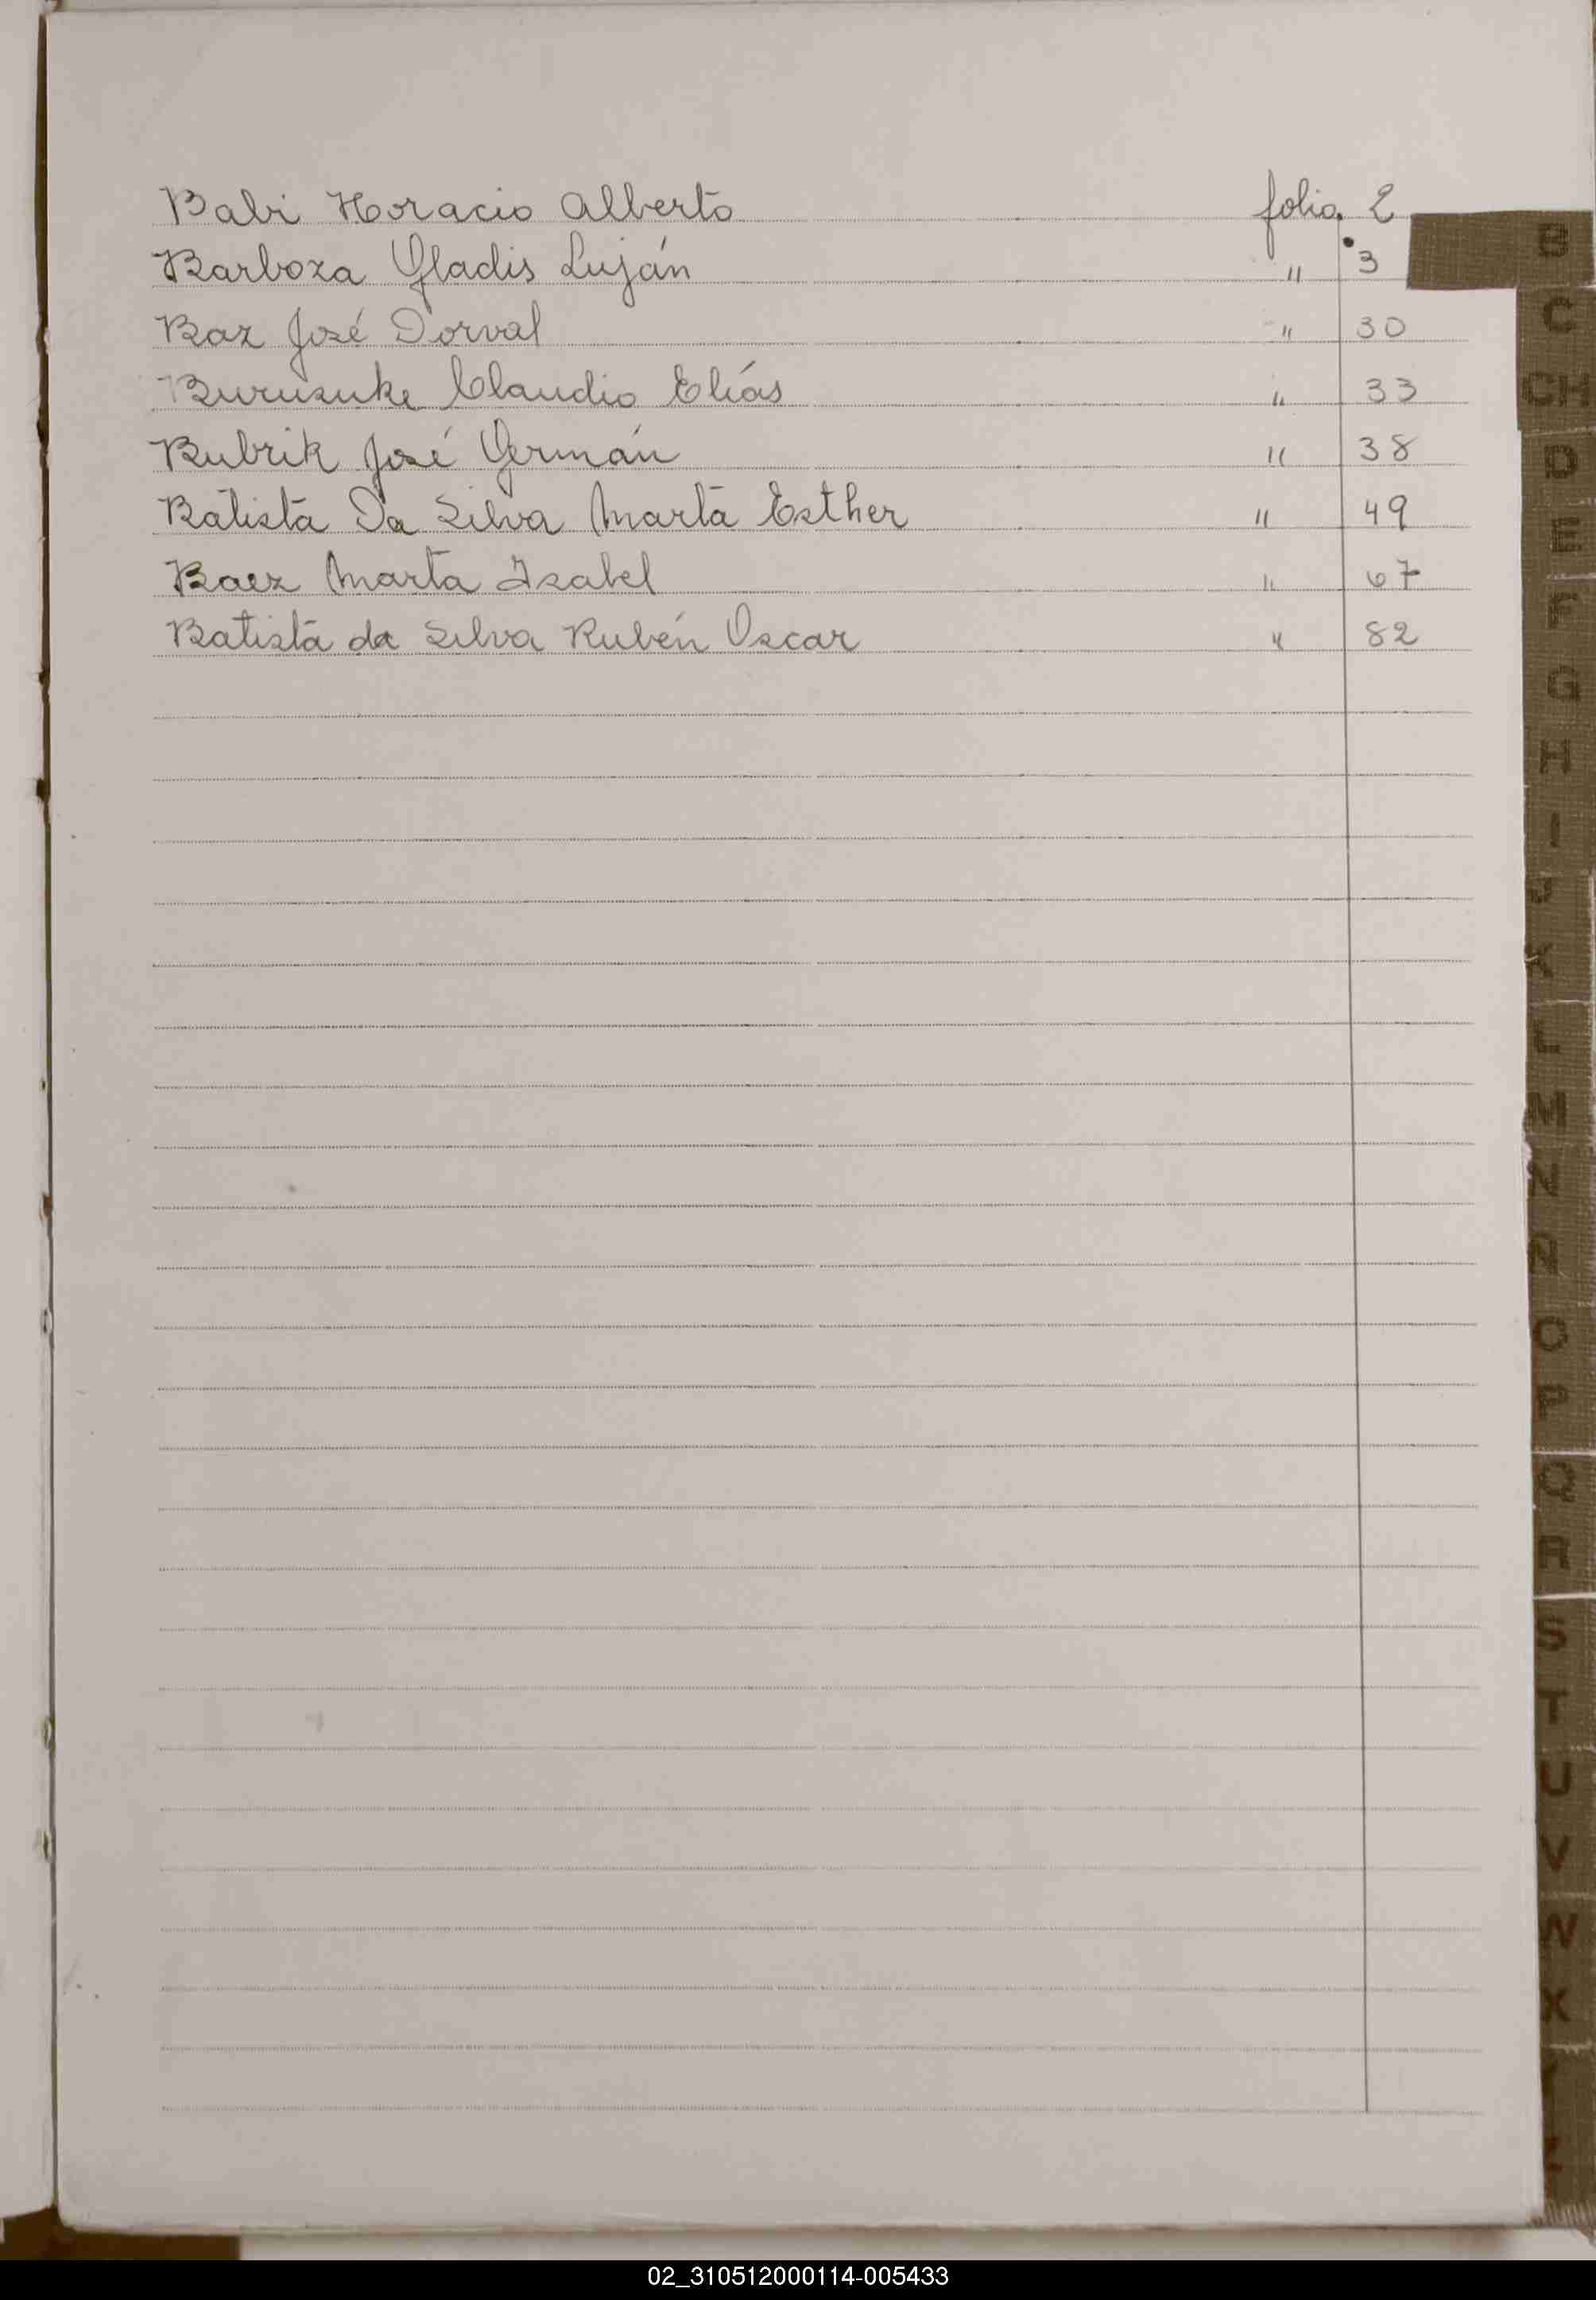 Babi Horacio Alberto folio 2
Barboza Gladis Luján " 3
Baz José Dorval " 30
Buruzuke Claudio Elías " 33
Bubrik José Germán " 38
Batista Da Silva Marta Esther " 49
Baez Marta Isabel " 67
Batista da Silva Rubén Oscar " 82
B
C
CH
D
E
F
G
H
I
J
K
L
M
N
Ñ
O
P
Q
R
S
T
U
V
W
X
02_310512000114-005433